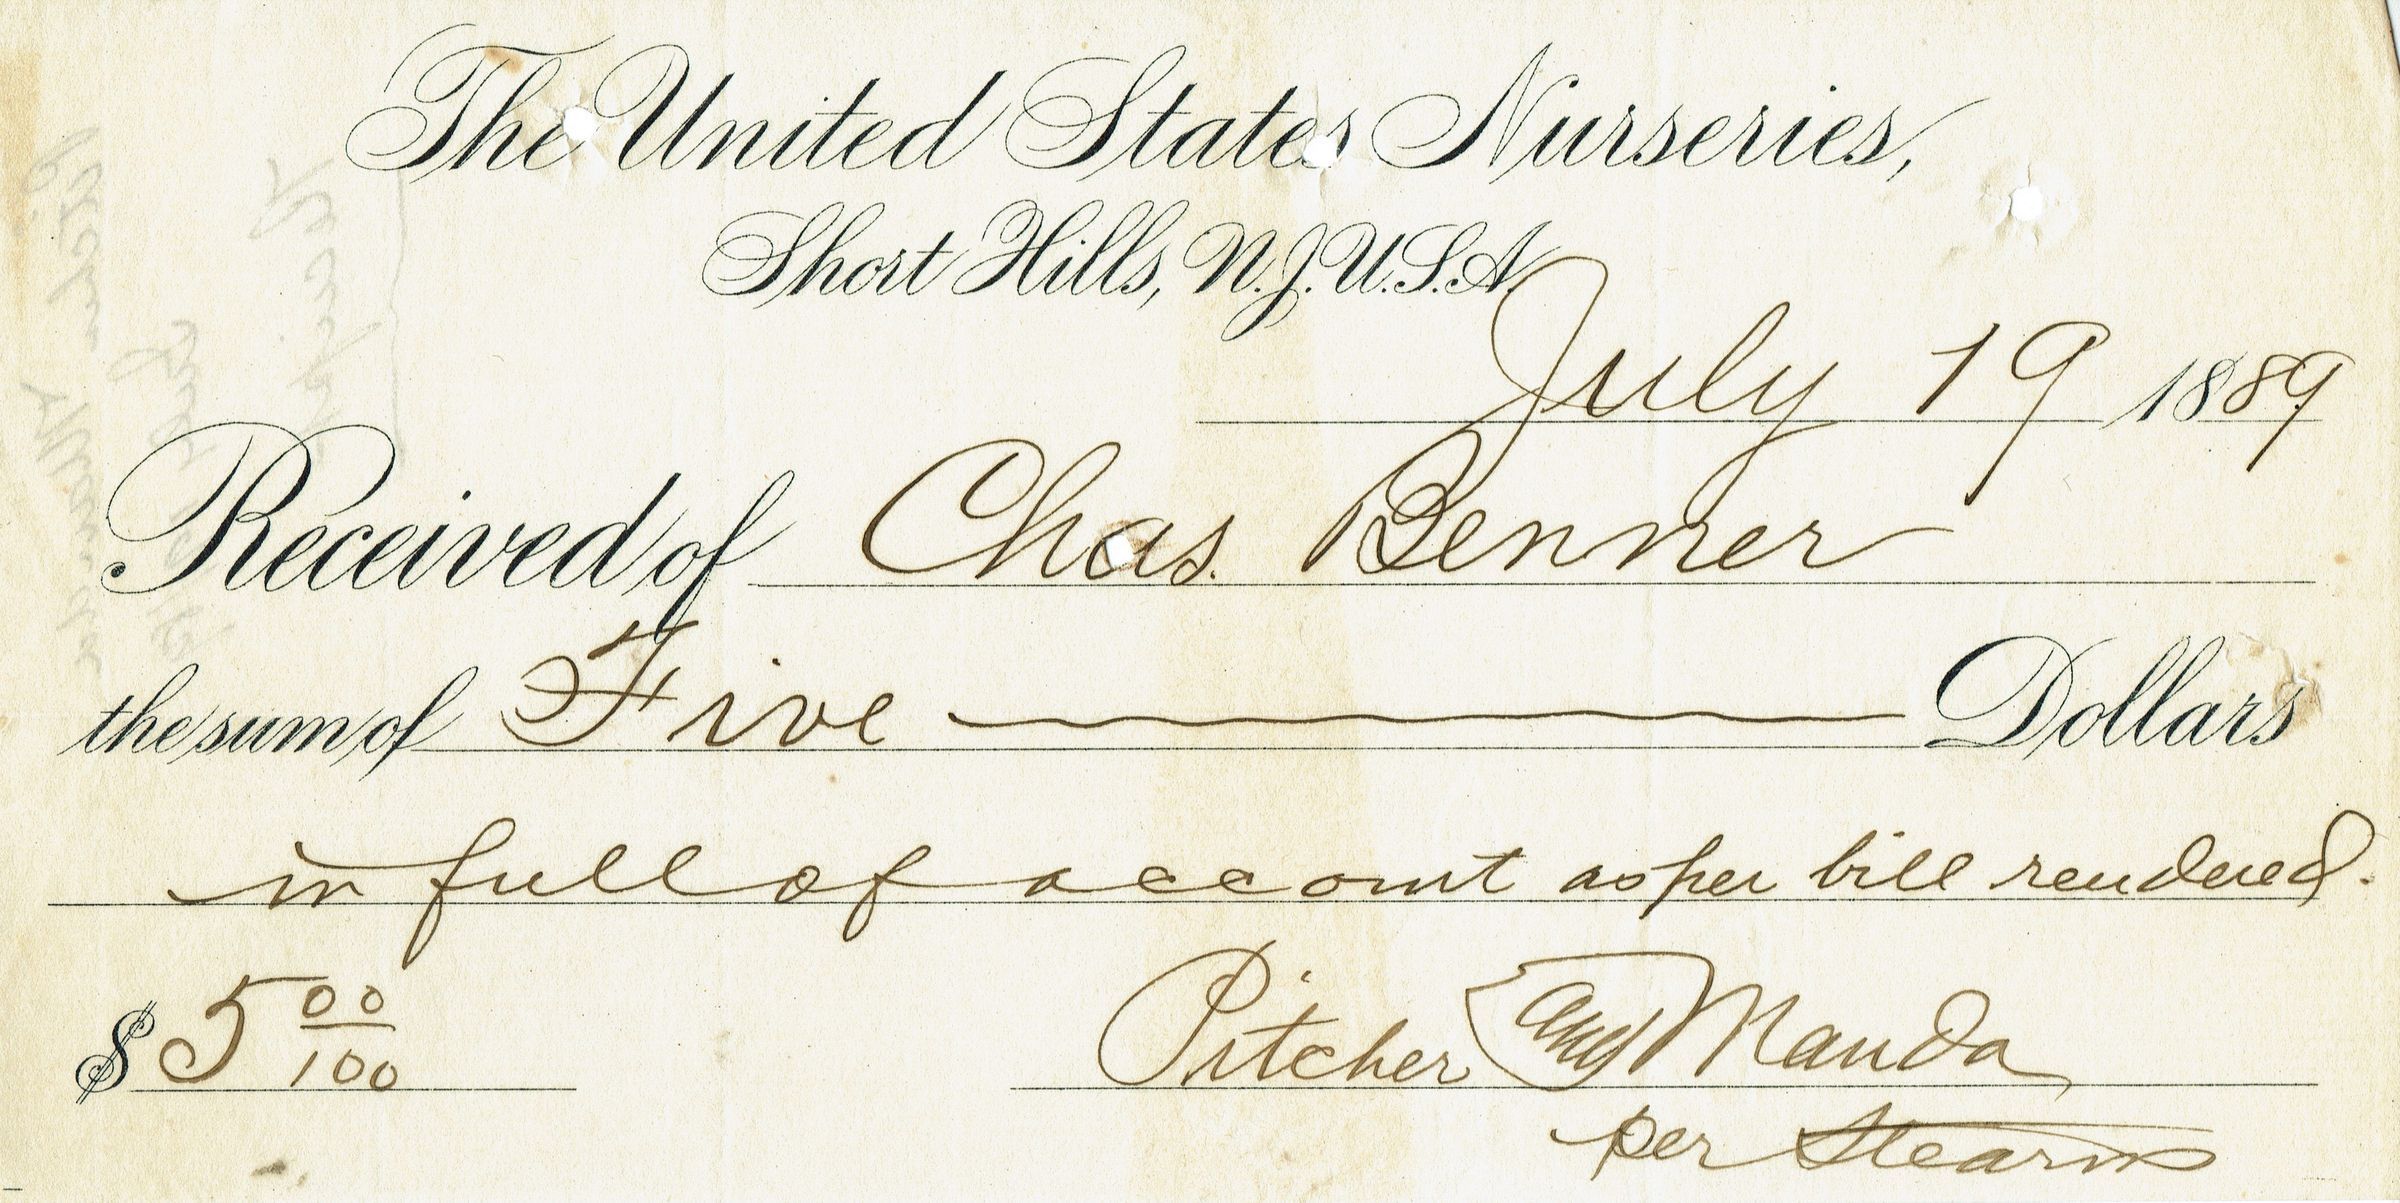 The United States Nurseries,
Short Hills, N.J. U.S.A.
July 19 1889
Received of Chas. Benner
the sum of Five Dollars
in full of account as per bill rendered.
$ 5 00/100
Pitcher and Manda
per Stearns